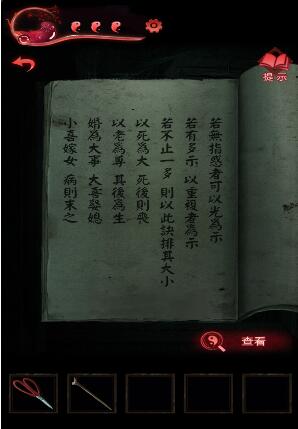 提示
若無指惑者可以光為示
若有多示 以重複者為示
若不止一多 則以此訣排其大小
以死為大 死後則喪
以老為尊 其後為生
婚為大事 大喜娶媳
小喜嫁女 病則末之
查看